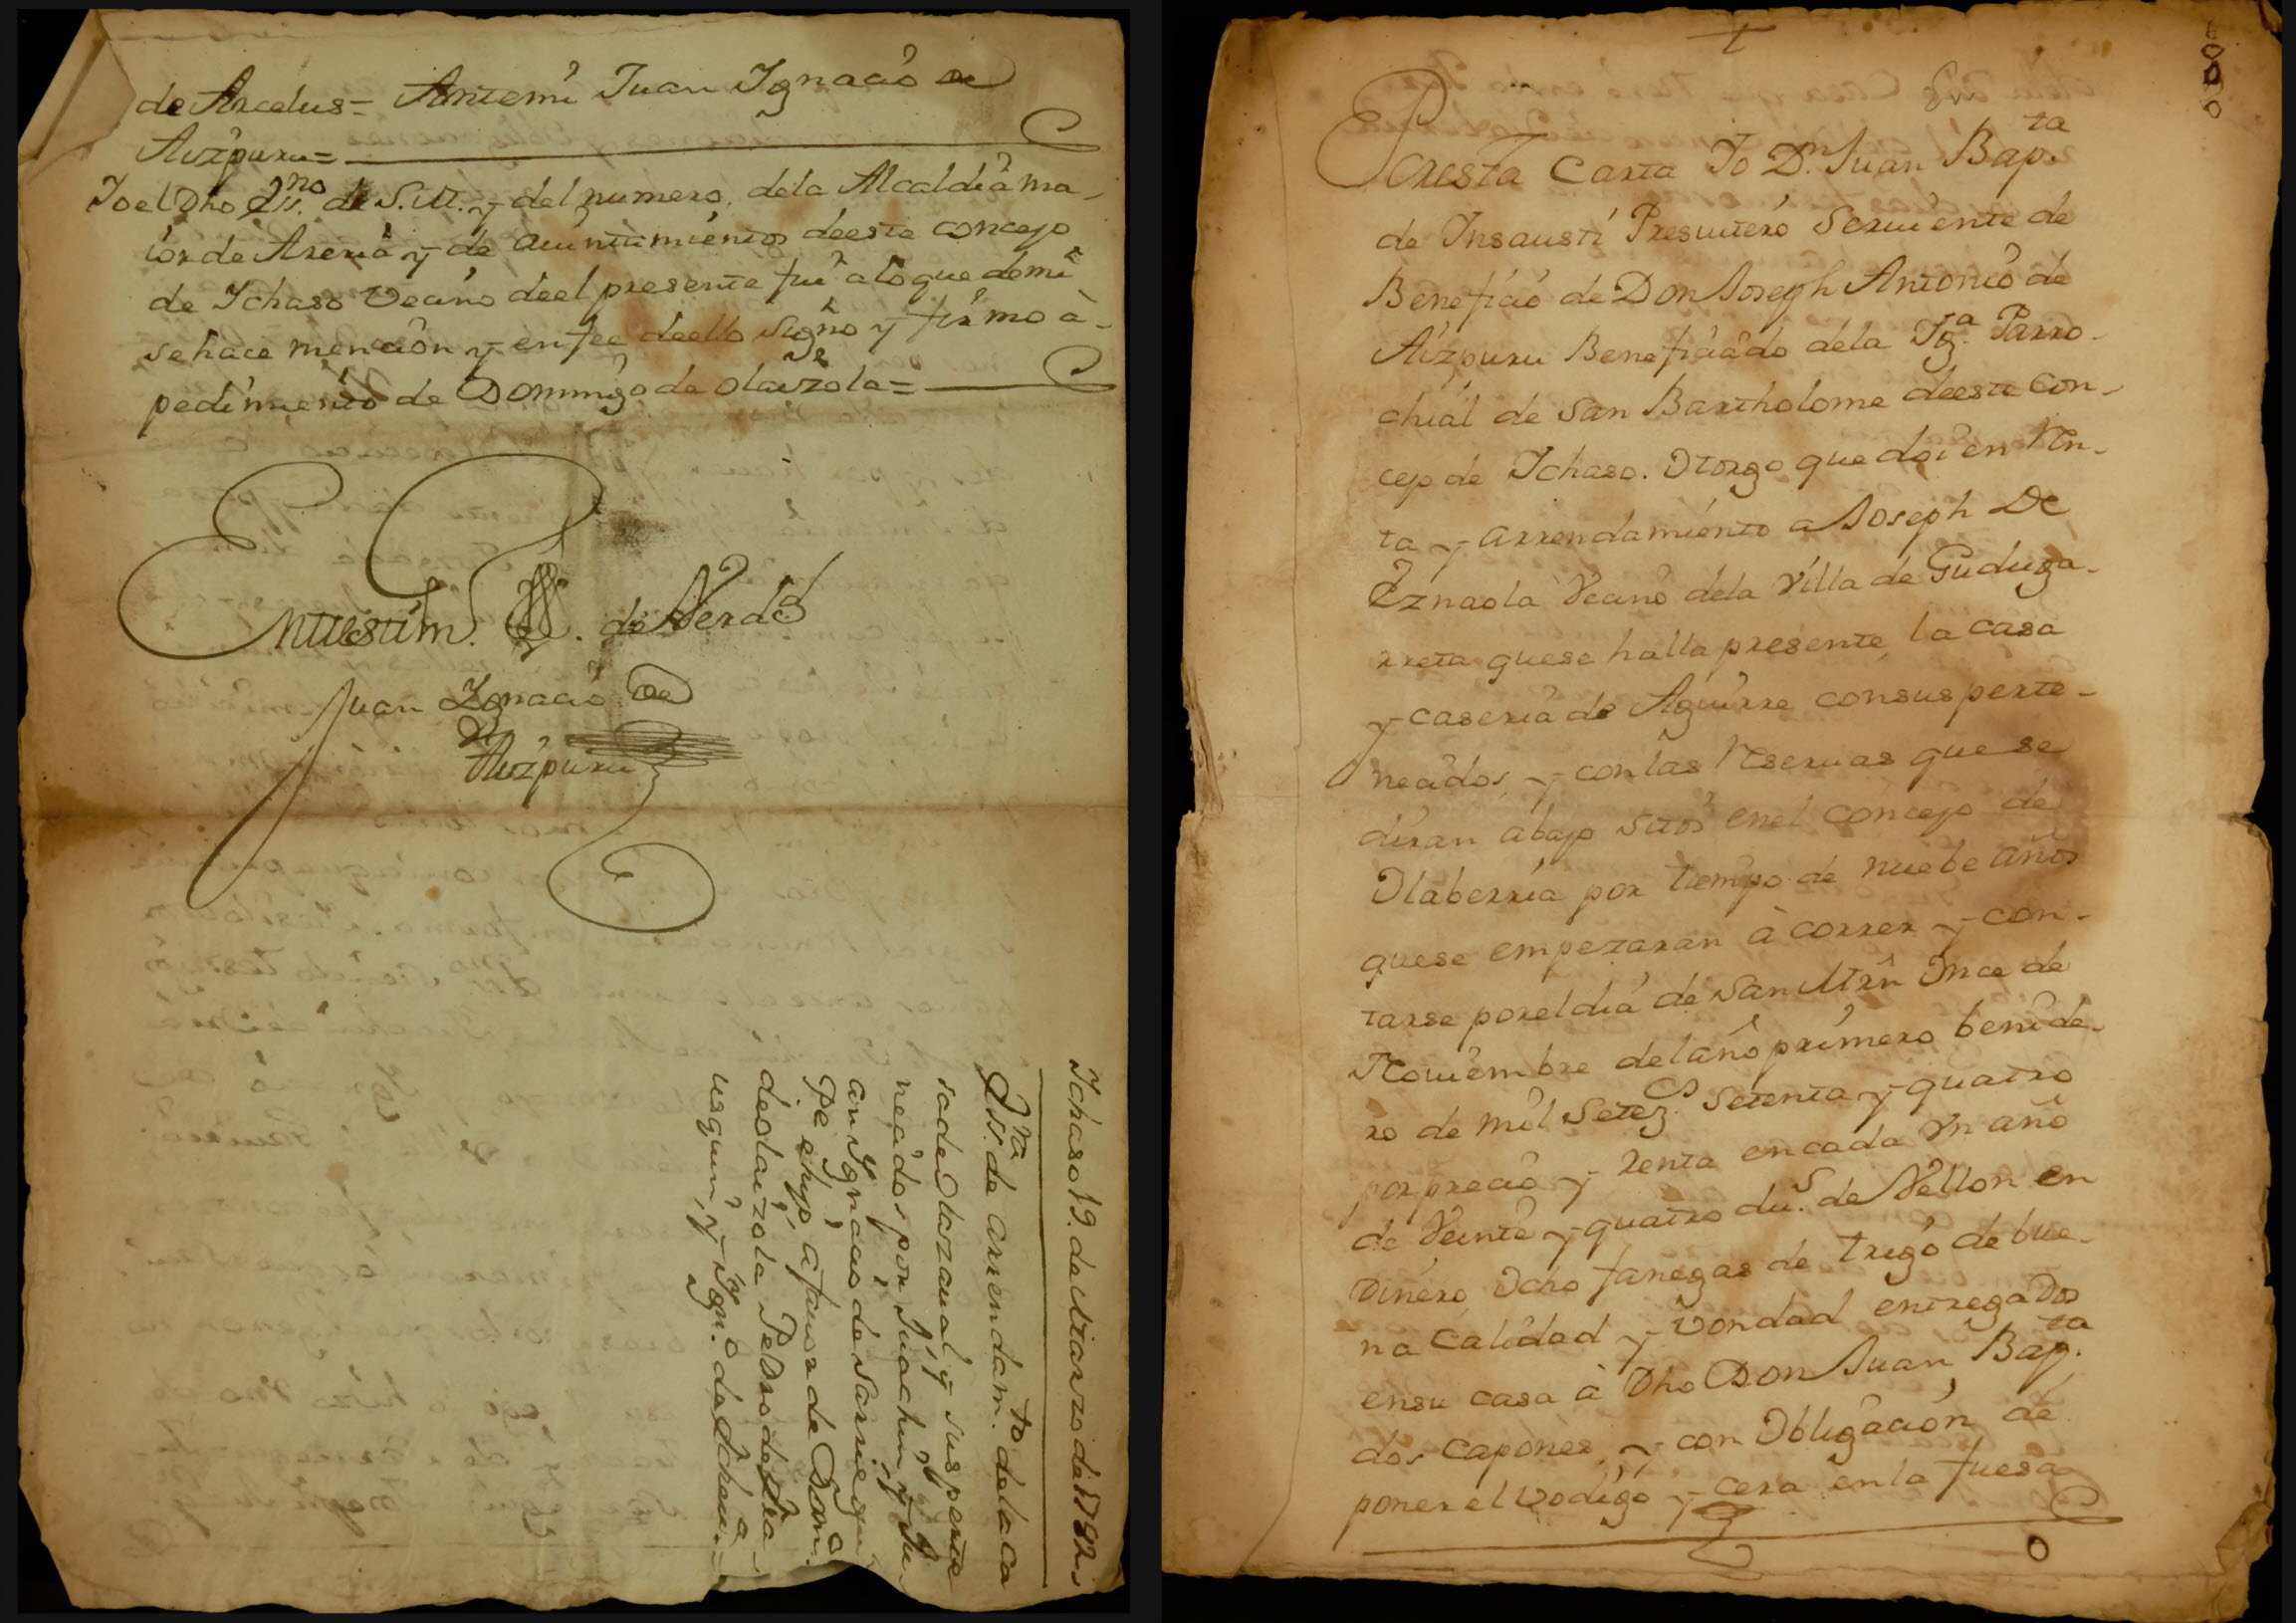 de Arcelus= Antemi Juan Ignacio de
Aizpuru=
Io el Dho Ess.no de S.M. y del numero dela Alcaldia ma-
ior de Areria y de aiuntamientos deeste concejo
de Ichaso Vecino deel presente fui alo que demi
se hace mencion y en fee deello signo y firmo a-
pedimiento de Domingo de olaizola=
En testim.o de Verdad
Juan Ignacio de
Aizpuru
Ichaso 19. de Marzo de 1782,
Ess.ra de arrendam.to dela ca
sa de Olazaual y sus perte
necidos por Juachin y Ju
an Ygnacio de Sarriegui
Pe e hijo a fauor de Dom.o
de olaizola Pedro de
usquin, y Ygn.o de Echeu.a
En
Por esta Carta Io D.n Juan Bap.ta
de Insausti Presuitero Seruiente de
Beneficio de Don Joseph Antonio de
Aizpuru Beneficiado dela Ig.a Parro-
chial de San Bartholome deeste Con-
cejo de Ichaso. Otorgo que doi en Ren-
ta y arrendamiento a Joseph De
Eznaola Vecino dela Villa de Guduga-
rreta quese halla presente, la casa
y caseria de Aguirre consus perte-
necidos, y con las Reseruas que se
diran abajo sitos enel concejo de
Olaberria por tiempo de nuebe años
quese empezaran à correr y con-
tarse por el dia de San Mrn Once de
Nouiembre del año primero benide-
ro de mil Setez.s setenta y quatro
por precio y Renta en cada Vn año
de Veinte y quatro du.s de Vellon en
Dinero, Ocho fanegas de trigo de bue-
na Calidad y vondad entregados
ensu casa à Dho Don Juan Bap.ta
dos capones, y con Obligacion de
poner el vodigo y cera en la fuesa